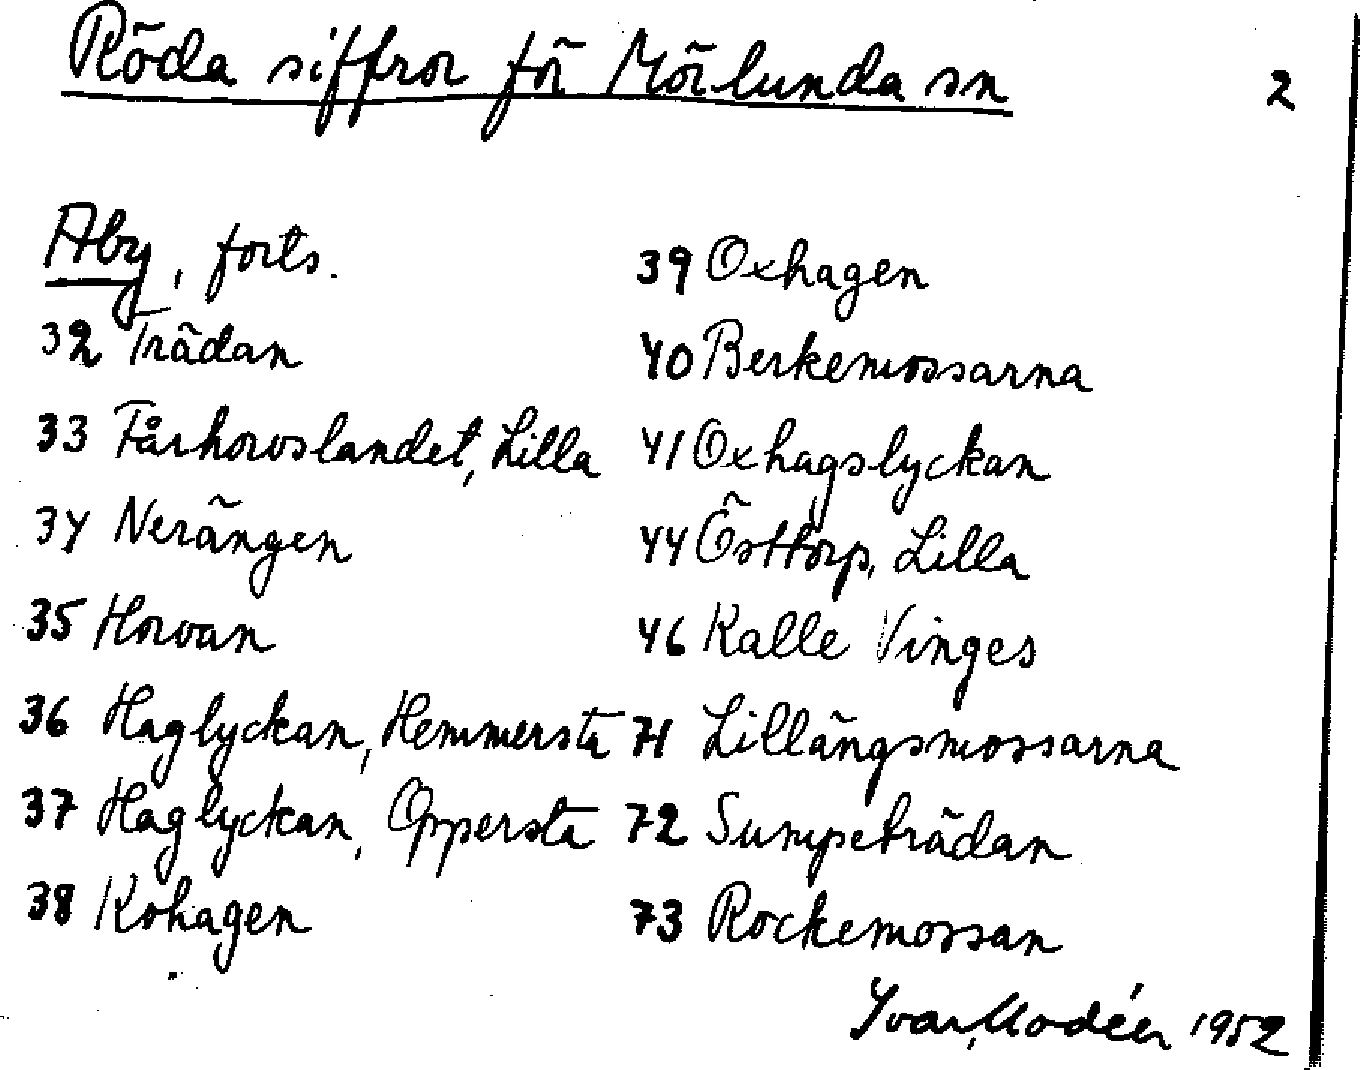 Röda siffror för Mörlunda sn
2
Åby, forts.
32 Trädan
33 Fårhorvslandet, Lilla
34 Nerängen
35 Horvan
36 Haglyckan, Hemmersta
37 Haglyckan, Oppersta
38 Kohagen
39 Oxhagen
40 Berkemossarna
41 Oxhagslyckan
44 Östtorp, Lilla
46 Kalle Vinges
71 Lillängsmossarna
72 Sumpeträdan
73 Rockemossan
Ivar Modéer 1952